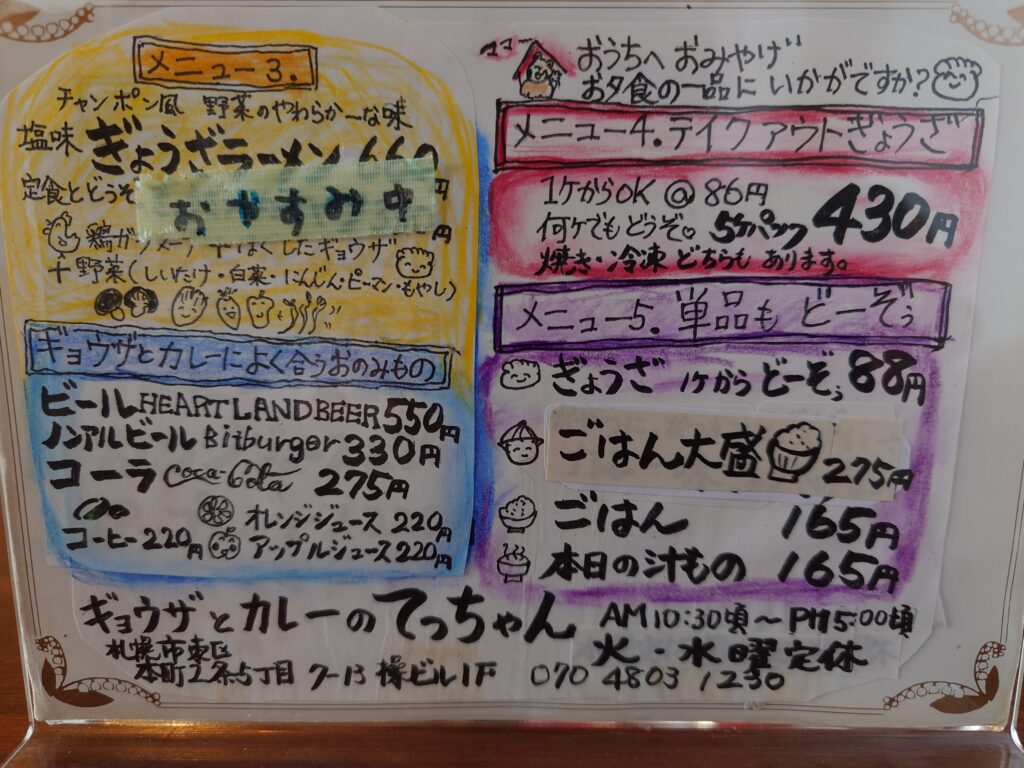 メニュー3.
チャンポン風 野菜のやわらか〜な味
塩味 ぎょうざラーメン 660
定食とどうぞ
おやすみ中
円
鶏ガラスープ
したギョウザ
十野菜(しいたけ・白菜・にんじん・ピーマン・もやし)
ギョウザとカレーによく合うおのみもの
ビール HEARTLAND BEER 550円
ノンアルビール Bitburger 330円
コーラ Coca-Cola 275円
オレンジジュース 220円
コーヒー 220円 アップルジュース 220円
おうちへ おみやげ
お夕食の一品に いかがですか?
メニュー4. テイクアウトぎょうざ
1ケからOK @86円
何ケでもどうぞ。 5ケパック 430円
焼き・冷凍 どちらも あります。
メニュー5. 単品も どーぞぅ
ぎょうざ 1ケから どーぞぅ 88円
ごはん大盛 275円
ごはん 165円
本日の汁もの 165円
ギョウザとカレーの てっちゃん AM10:30頃〜PM5:00頃
火・水曜定休
札幌市東区
本町2条5丁目 7-13 操ビル1F 070 4803 1230